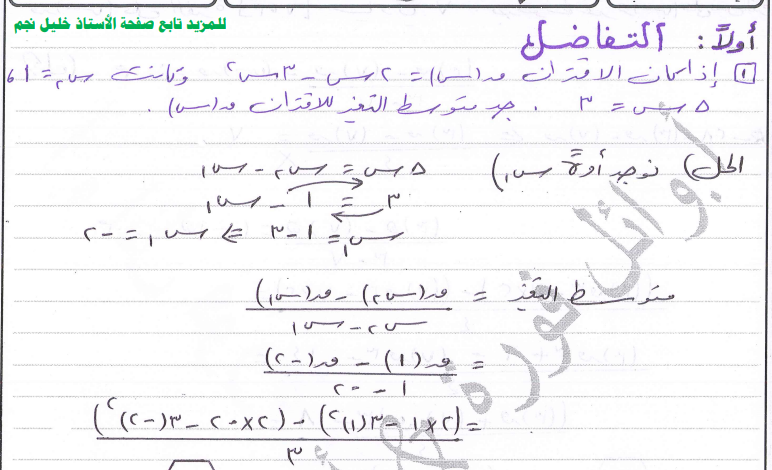 للمزيد تابع صفحة الأستاذ خليل نجم
أولاً: التفاضل
١ إذا كان الاقتران ق(س) = ٢س - ٣س٢ وكانت س٢ = ١،
Δس = ٣ . جد متوسط التغير للاقتران ق(س).
الحل) نوجد أولاً س١) Δس = س٢ - س١
٣ = ١ - س١
س١ = ١ - ٣ ⇐ س١ = -٢
متوسط التغير = ق(س٢) - ق(س١) / س٢ - س١
= ق(١) - ق(-٢) / ١ - -٢
= (٢×١ - ٣(١)٢) - (٢×-٢ - ٣(-٢)٢) / ٣